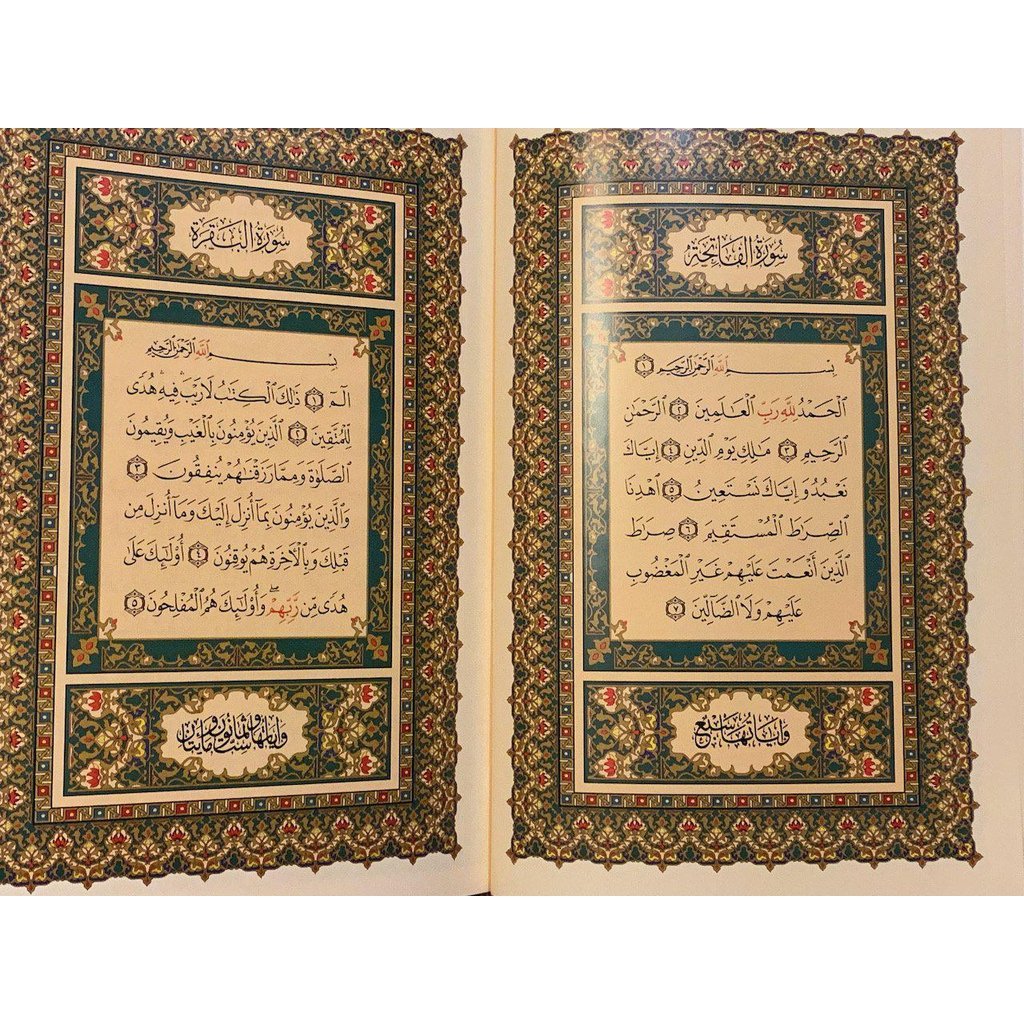 سُورَةُ الْفَاتِحَةِ
بِسْمِ ٱللَّهِ ٱلرَّحْمَٰنِ ٱلرَّحِيمِ ١
ٱلْحَمْدُ لِلَّهِ رَبِّ ٱلْعَٰلَمِينَ ٢ ٱلرَّحْمَٰنِ
ٱلرَّحِيمِ ٣ مَٰلِكِ يَوْمِ ٱلدِّينِ ٤ إِيَّاكَ
نَعْبُدُ وَإِيَّاكَ نَسْتَعِينُ ٥ ٱهْدِنَا
ٱلصِّرَٰطَ ٱلْمُسْتَقِيمَ ٦ صِرَٰطَ
ٱلَّذِينَ أَنْعَمْتَ عَلَيْهِمْ غَيْرِ ٱلْمَغْضُوبِ
عَلَيْهِمْ وَلَا ٱلضَّآلِّينَ ٧
وآياتها سبع
سُورَةُ الْبَقَرَةِ
بِسْمِ ٱللَّهِ ٱلرَّحْمَٰنِ ٱلرَّحِيمِ
الٓمٓ ١ ذَٰلِكَ ٱلْكِتَٰبُ لَا رَيْبَ ۛ فِيهِ ۛ هُدًى
لِّلْمُتَّقِينَ ٢ ٱلَّذِينَ يُؤْمِنُونَ بِٱلْغَيْبِ وَيُقِيمُونَ
ٱلصَّلَوٰةَ وَمِمَّا رَزَقْنَٰهُمْ يُنفِقُونَ ٣
وَٱلَّذِينَ يُؤْمِنُونَ بِمَآ أُنزِلَ إِلَيْكَ وَمَآ أُنزِلَ مِن
قَبْلِكَ وَبِٱلْءَاخِرَةِ هُمْ يُوقِنُونَ ٤ أُو۟لَٰٓئِكَ عَلَىٰ
هُدًى مِّن رَّبِّهِمْ ۖ وَأُو۟لَٰٓئِكَ هُمُ ٱلْمُفْلِحُونَ ٥
وآياتها ست وثمانون ومائتان